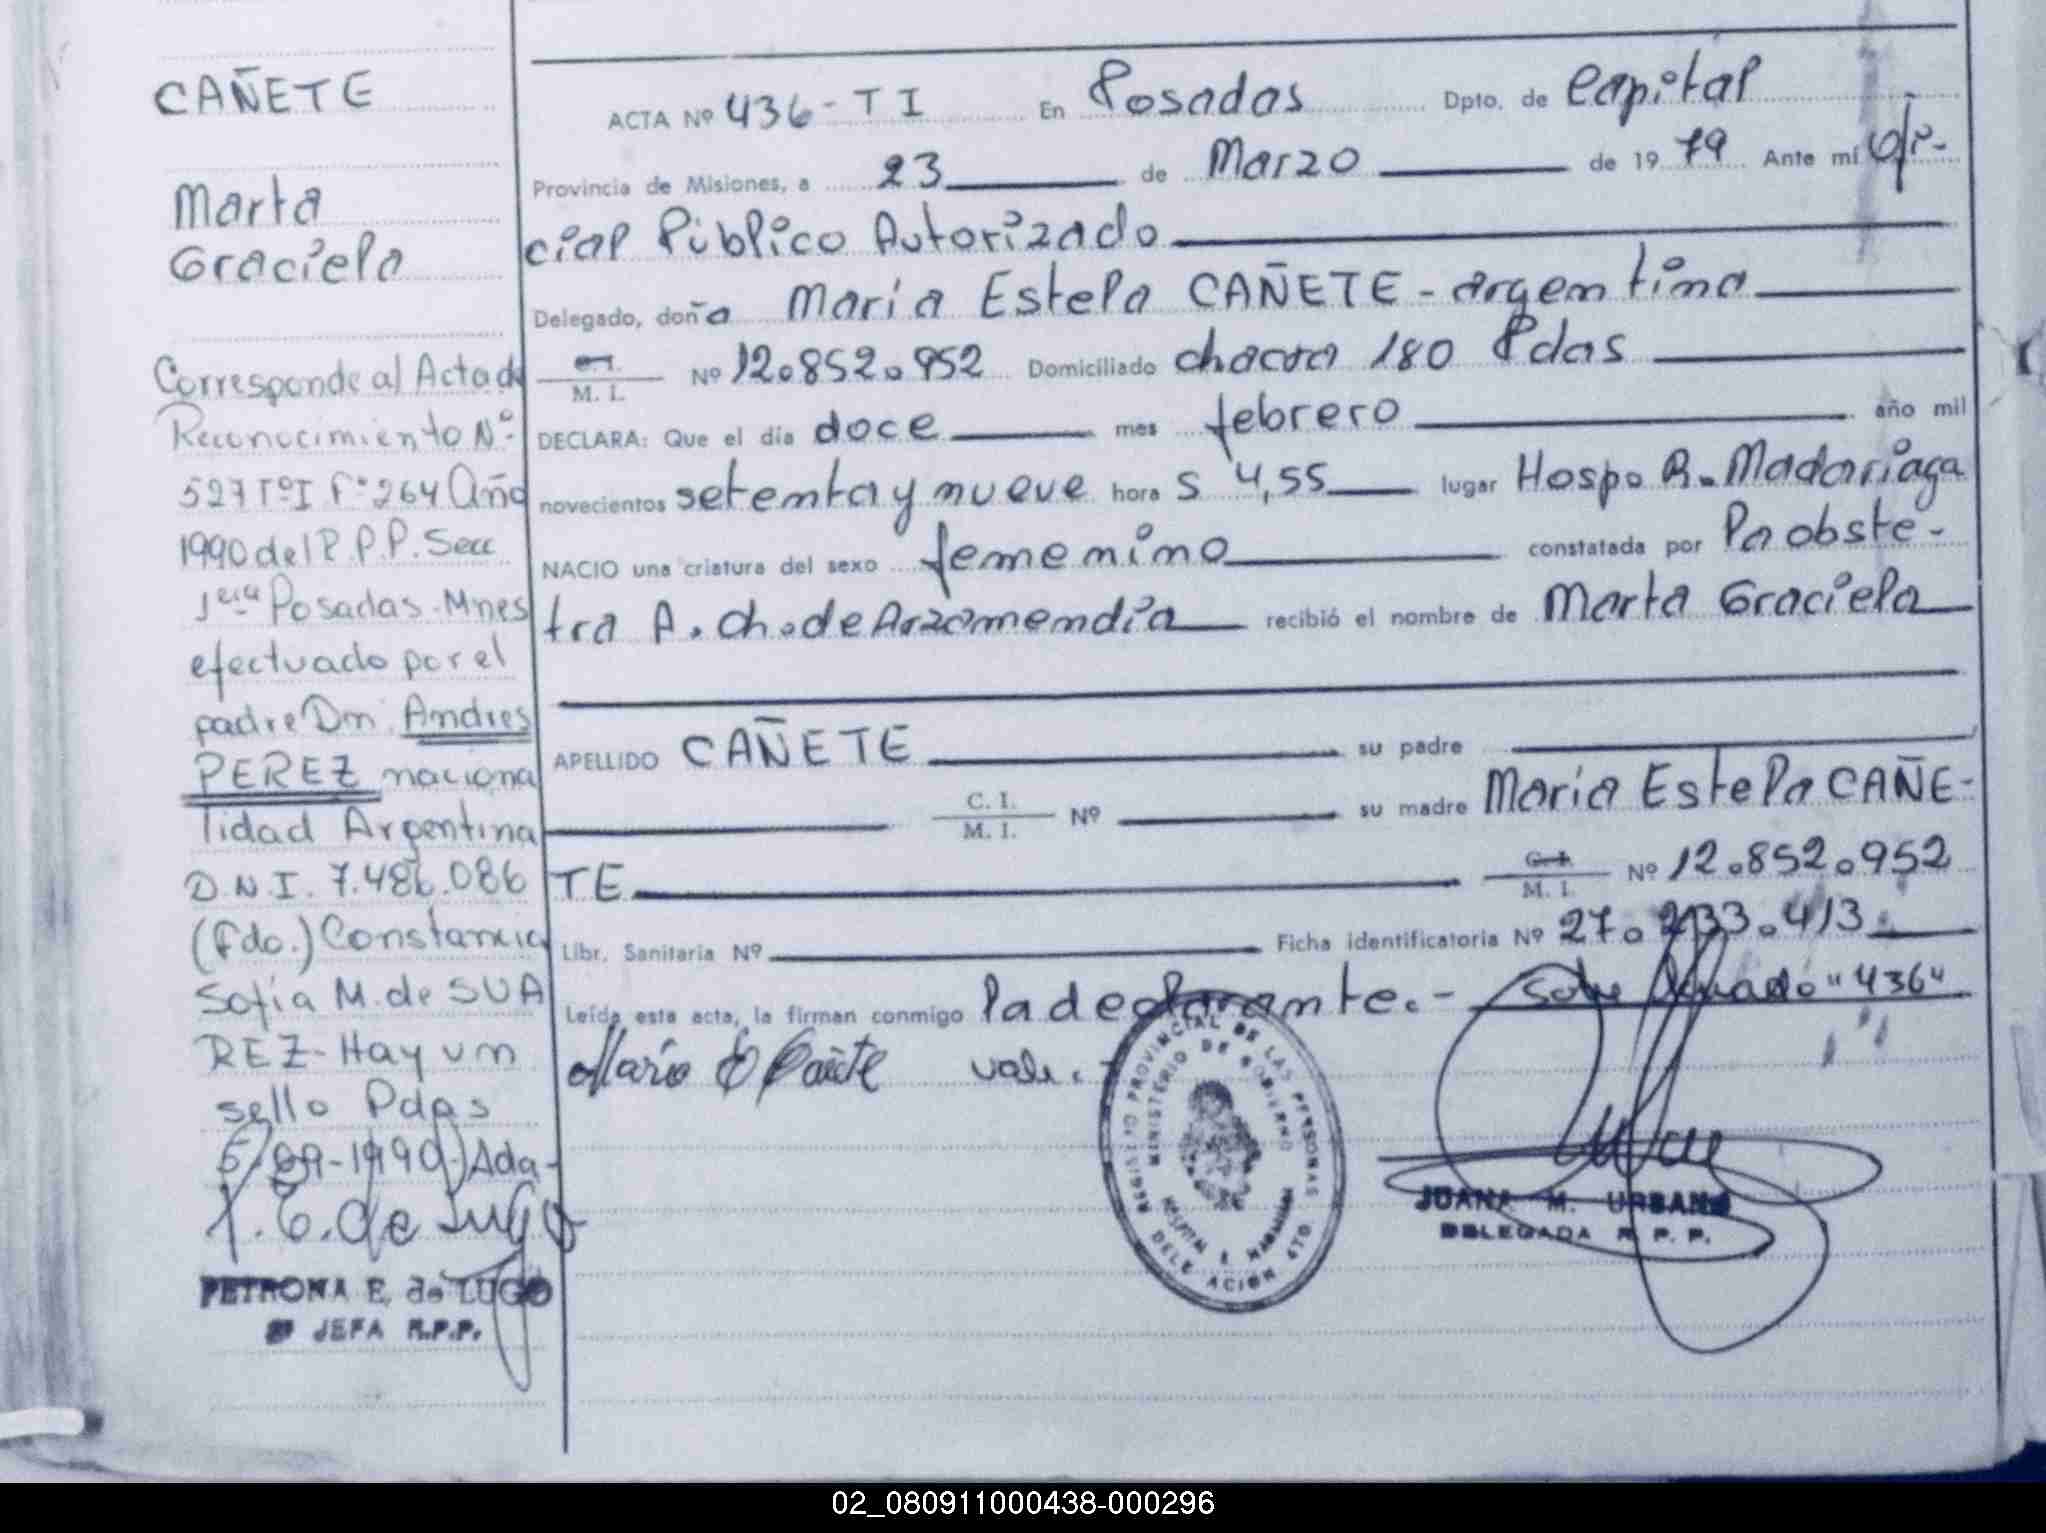 CAÑETE
Marta
Graciela
Corresponde al Acta de
Reconocimiento Nº
527 TºI Fº264 Año
1990 del R.P.P. Secc
1era Posadas-Mnes
efectuado por el
padre Dn. Andres
PEREZ naciona
lidad Argentina
D.N.I. 7.486.086
(Fdo.) Constancia
Sofia M. de SUA
REZ-Hay un
sello Pdas
5/09-1990
P. E. de Lugo
PETRONA E. de LUGO
JEFA R.P.P.
ACTA Nº 436-TI En Posadas Dpto. de Capital
Provincia de Misiones, a 23 de Marzo de 1979 Ante mí Ofi-
cial Público Autorizado
Delegado, doña María Estela CAÑETE-argentina
C.I. M. I. Nº 12.852.952 Domiciliado chacra 180 Pdas
DECLARA: Que el día doce mes febrero año mil
novecientos setenta y nueve hora s 4,55 lugar Hosp. R. Madariaga
NACIO una criatura del sexo femenino constatada por la obste-
tra A. Ch. de Arzamendia recibió el nombre de Marta Graciela
APELLIDO CAÑETE su padre
C. I. M. I. Nº su madre María Estela CAÑE-
TE C.I. M. I. Nº 12.852.952
Libr. Sanitaria Nº Ficha identificatoria Nº 27.233.413
Leída esta acta, la firman conmigo la declarante.- Sobre "436"
María E Cañete vale.-
REGISTRO PROVINCIAL DE LAS PERSONAS
MINISTERIO DE GOBIERNO
HOSPITAL R. MADARIAGA
DELEGACION 4TO.
JUANA M. URBANO
DELEGADA R. P. P.
02_080911000438-000296